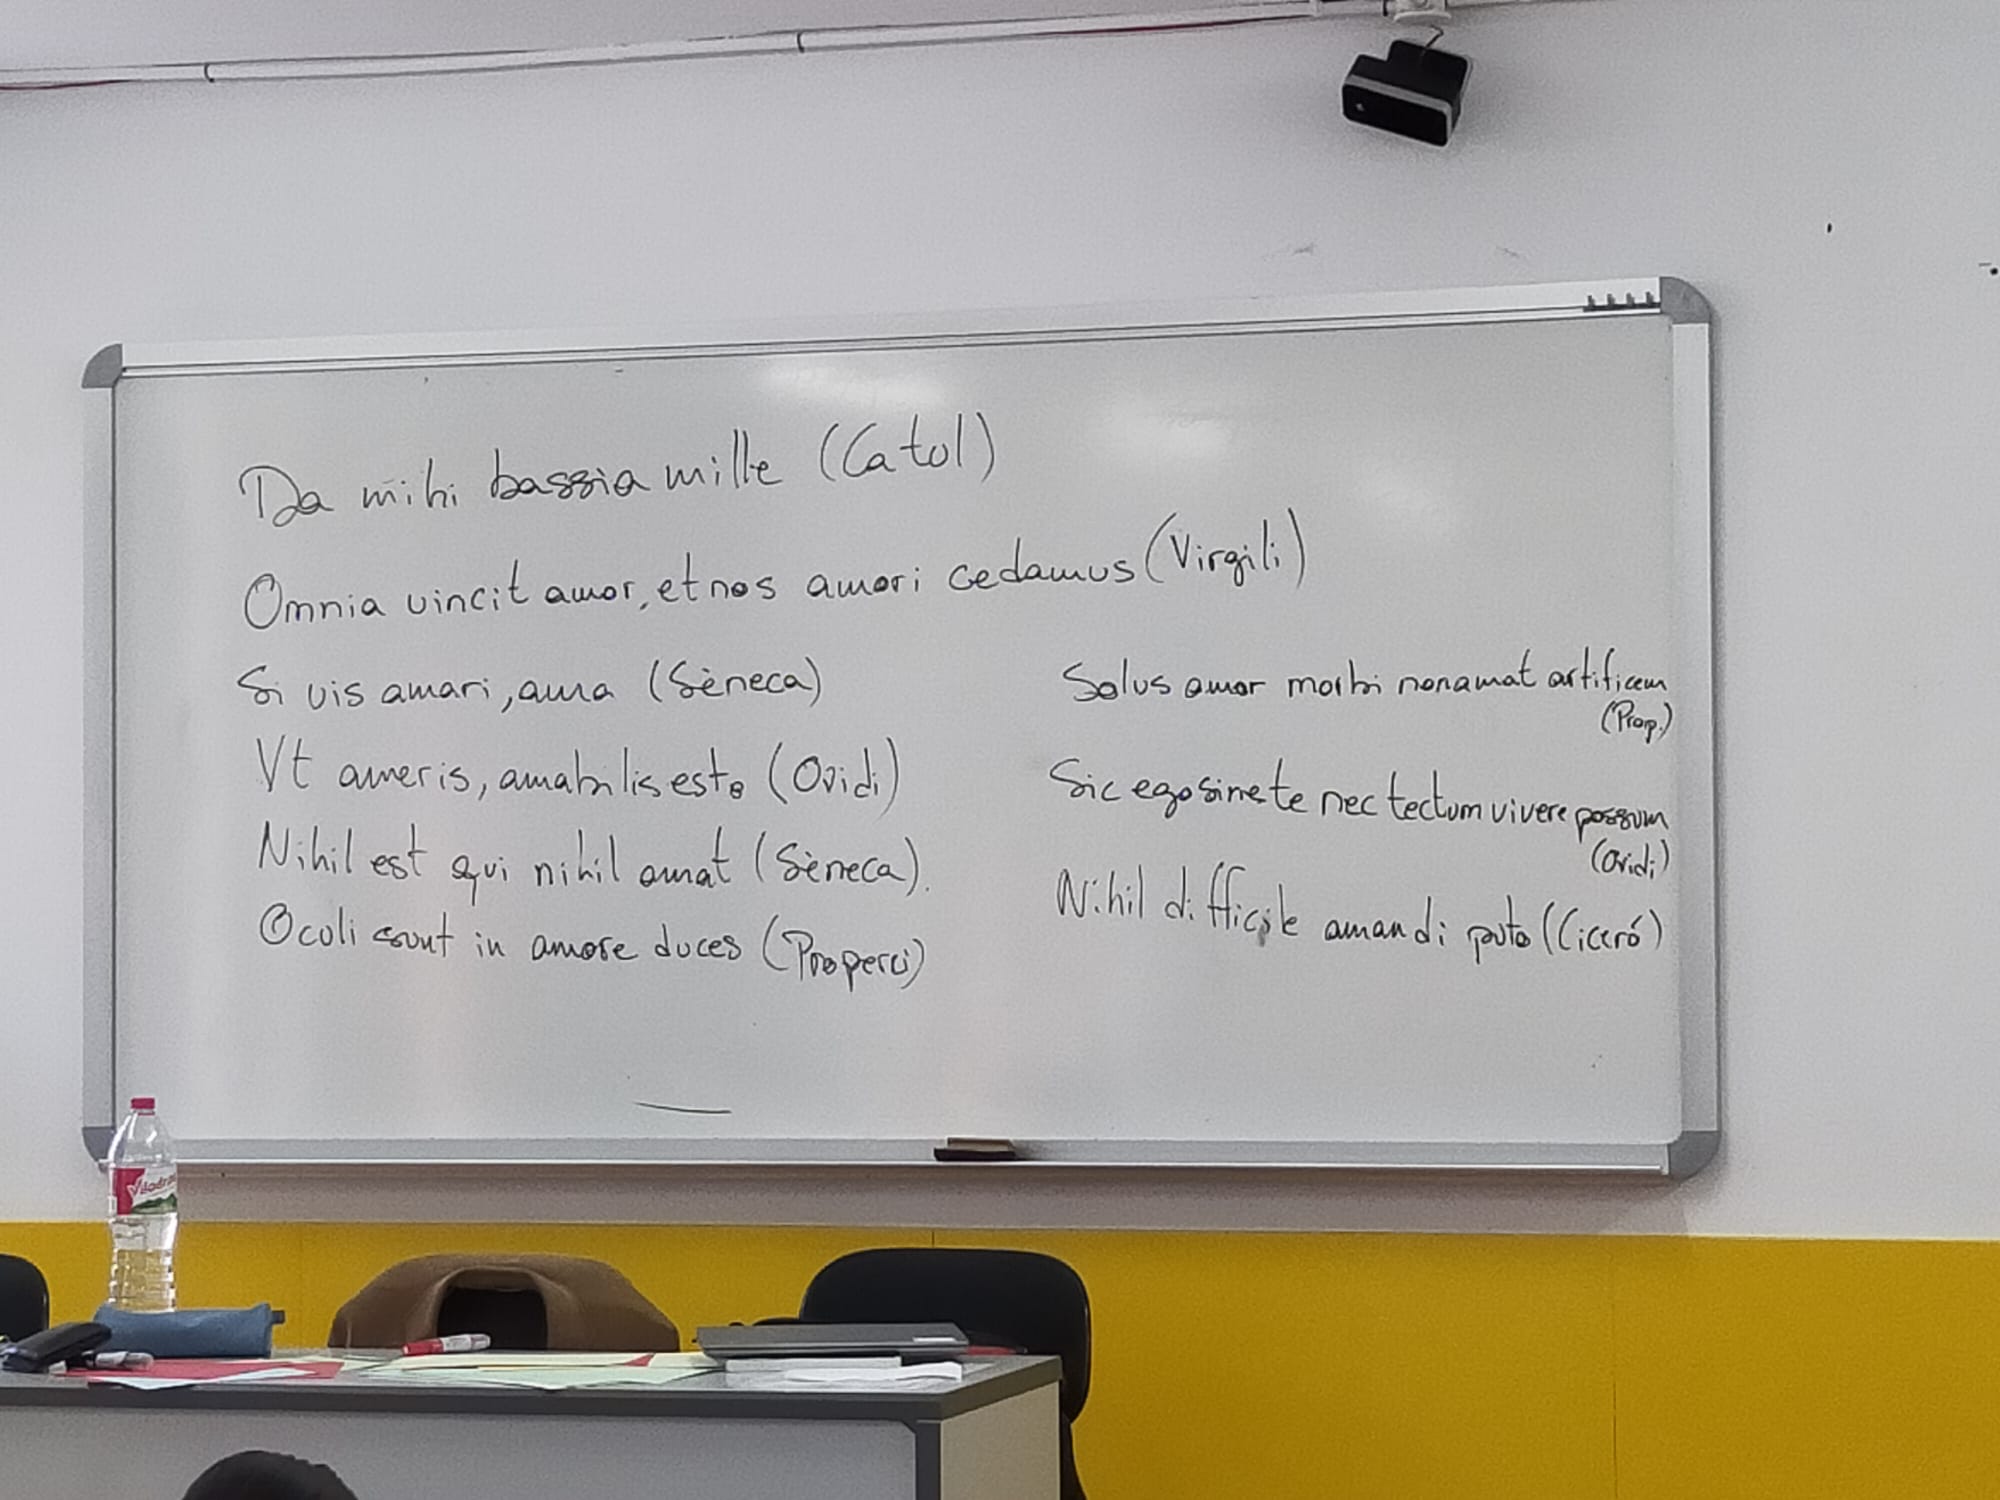 Da mihi bassia mille (Catul)
Omnia vincit amor, et nos amori cedamus (Virgili)
Si vis amari, ama (Sèneca)
Vt ameris, amabilis esto (Ovidi)
Nihil est qui nihil amat (Sèneca).
Oculi sunt in amore duces (Properci)
Solus amor morbi non amat artificem
(Prop.)
Sic ego sine te nec tectum vivere possum
(Ovidi)
Nihil difficile amandi puto (Ciceró)